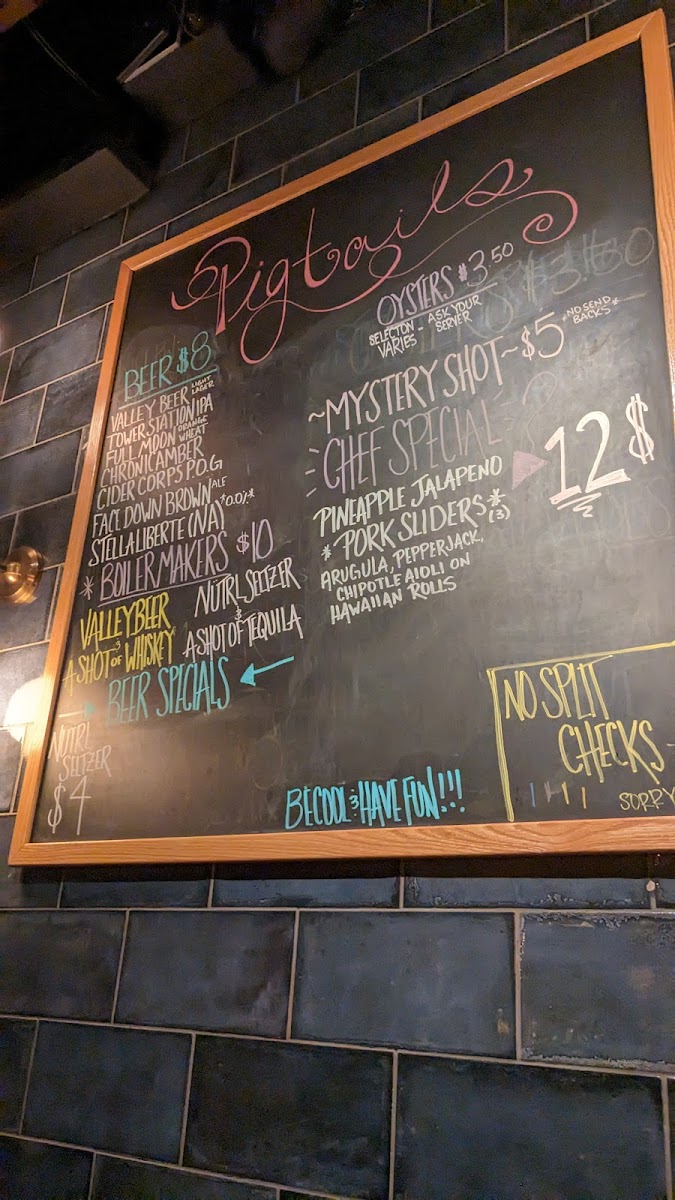 Pigtails
OYSTERS $3.50
SELECTON VARIES - ASK YOUR SERVER
BEER $8
VALLEY BEER LIGHT LAGER
TOWER STATION IPA
FULL MOON ORANGE WHEAT
CHRONIC AMBER
CIDER CORPS P.O.G
FACE DOWN BROWN ALE
STELLA LIBERTE (NA) *0.0%*
* BOILERMAKERS $10
VALLEY BEER
&
A SHOT OF WHISKEY
NÜTRL SELTZER
&
A SHOT OF TEQUILA
BEER SPECIALS
NÜTRL
SELTZER
$4
~MYSTERY SHOT~ $5 *NO SEND BACKS*
CHEF SPECIAL
PINEAPPLE JALAPENO
* PORK SLIDERS * (3)
12$
ARUGULA, PEPPERJACK,
CHIPOTLE AIOLI ON
HAWAIIAN ROLLS
NO SPLIT
CHECKS
SORRY
BE COOL & HAVE FUN!!!